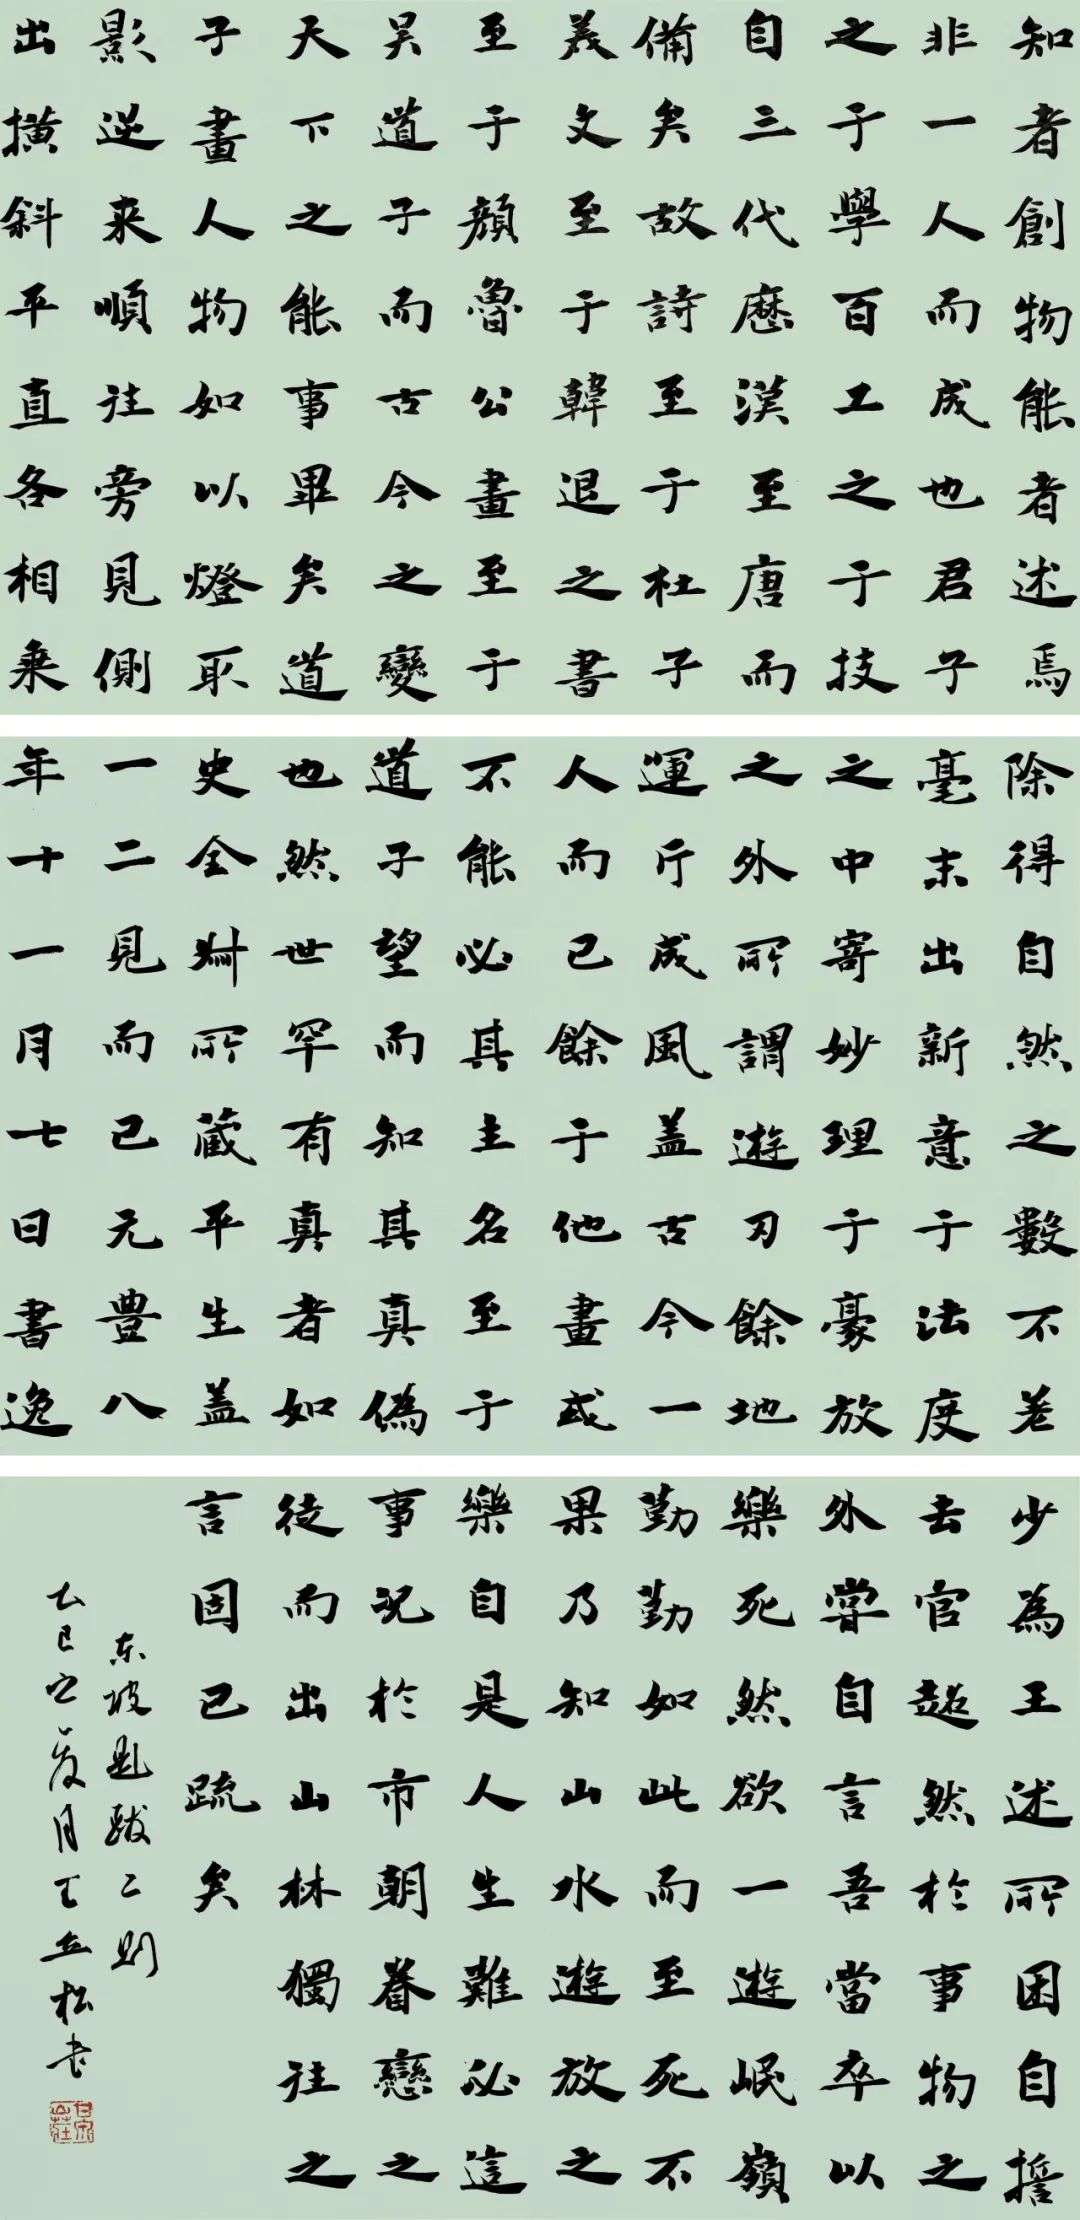 知者創物能者述焉
非一人而成也君子
之于學百工之于技
自三代歷漢至唐而
備矣故詩至于杜子
美文至于韓退之書
至于顏魯公畫至于
吴道子而古今之變
天下之能事畢矣道
子畫人物如以燈取
影逆来順往旁見側
出横斜平直各相乘
除得自然之數不差
毫末出新意于法度
之中寄妙理于豪放
之外所謂遊刃餘地
運斤成風盖古今一
人而已餘于他畫或
不能必其主名至于
道子望而知其真偽
也然世罕有真者如
史全叔所藏平生盖
一二見而已元豊八
年十一月七日書逸
少為王述所困自誓
去官超然於事物之
外嘗自言吾當卒以
樂死然欲一遊岷嶺
勤勤如此而至死不
果乃知山水遊放之
樂自是人生難必這
事况於市朝眷戀之
徒而出山林獨往之
言固已疏矣
东坡題跋二则
乙巳之夏月松书